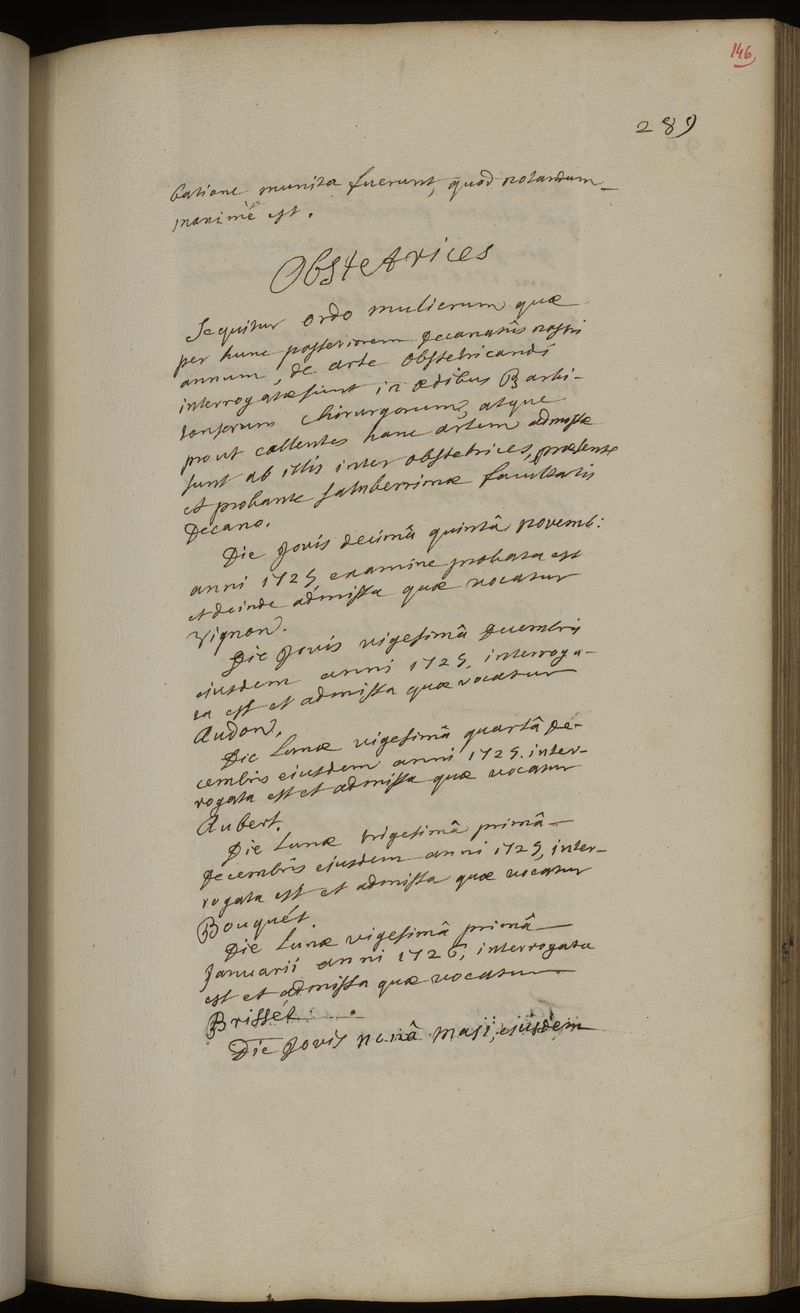 146
289
batione munita fuerunt, quod notandum
maximè est.
Obstetrices
Sequitur ordo mulierum quæ
per hunc posteriorem Decanatûs nostri
annum, de arte obstetricandi
interrogatæ sunt in ædibus Barbi-
tonsorum chirurgorum, atque
prout callentes hanc artem admissæ
sunt ab illis inter obstetrices, præsente
et probante saluberrimæ facultatis
Decano.
Die Jovis decimâ quintâ novemb:
anni 1725, examine probata est
et deinde admissa quæ vocatur
Vignon.
Die Jovis vigesimâ Decembris
ejusdem anni 1725. interroga-
ta est et admissa quæ vocatur
Audon.
Die Lunæ vigesimâ quartâ De-
cembris eiusdem anni 1725. inter-
rogata est et admissa quæ vocatur
Aubert.
Die Lunæ trigesimâ primâ
Decembris eiusdem anni 1725, inter-
rogata est et admissa quæ vocatur
Bouquét.
Die Lunæ vigesimâ primâ
Januarii anni 1726, interrogata
est et admissa quæ vocatur
Brissét.
Die Jovis nonâ maji, ejusdem